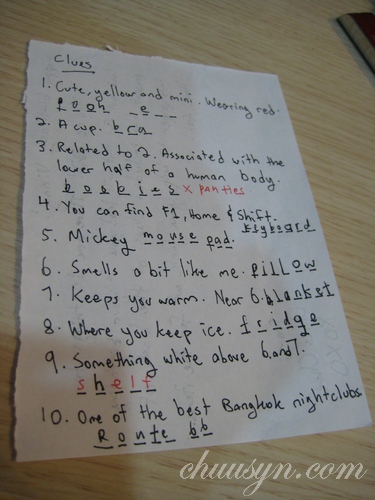 Clues
1. Cute, yellow and mini. Wearing red.
p o o h _ e _ _
2. A cup. b r a
3. Related to 2. Associated with the
lower half of a human body.
b o o b i e s x panties
4. You can find F1, Home & Shift.
keyboard
5. Mickey mouse pad.
6. Smells a bit like me. pillow
7. Keeps you warm. Near 6. blanket
8. Where you keep ice. fridge
9. Something white above 6. and 7.
shelf
10. One of the best Bangkok nightclubs
Route 66
chuusyn.com